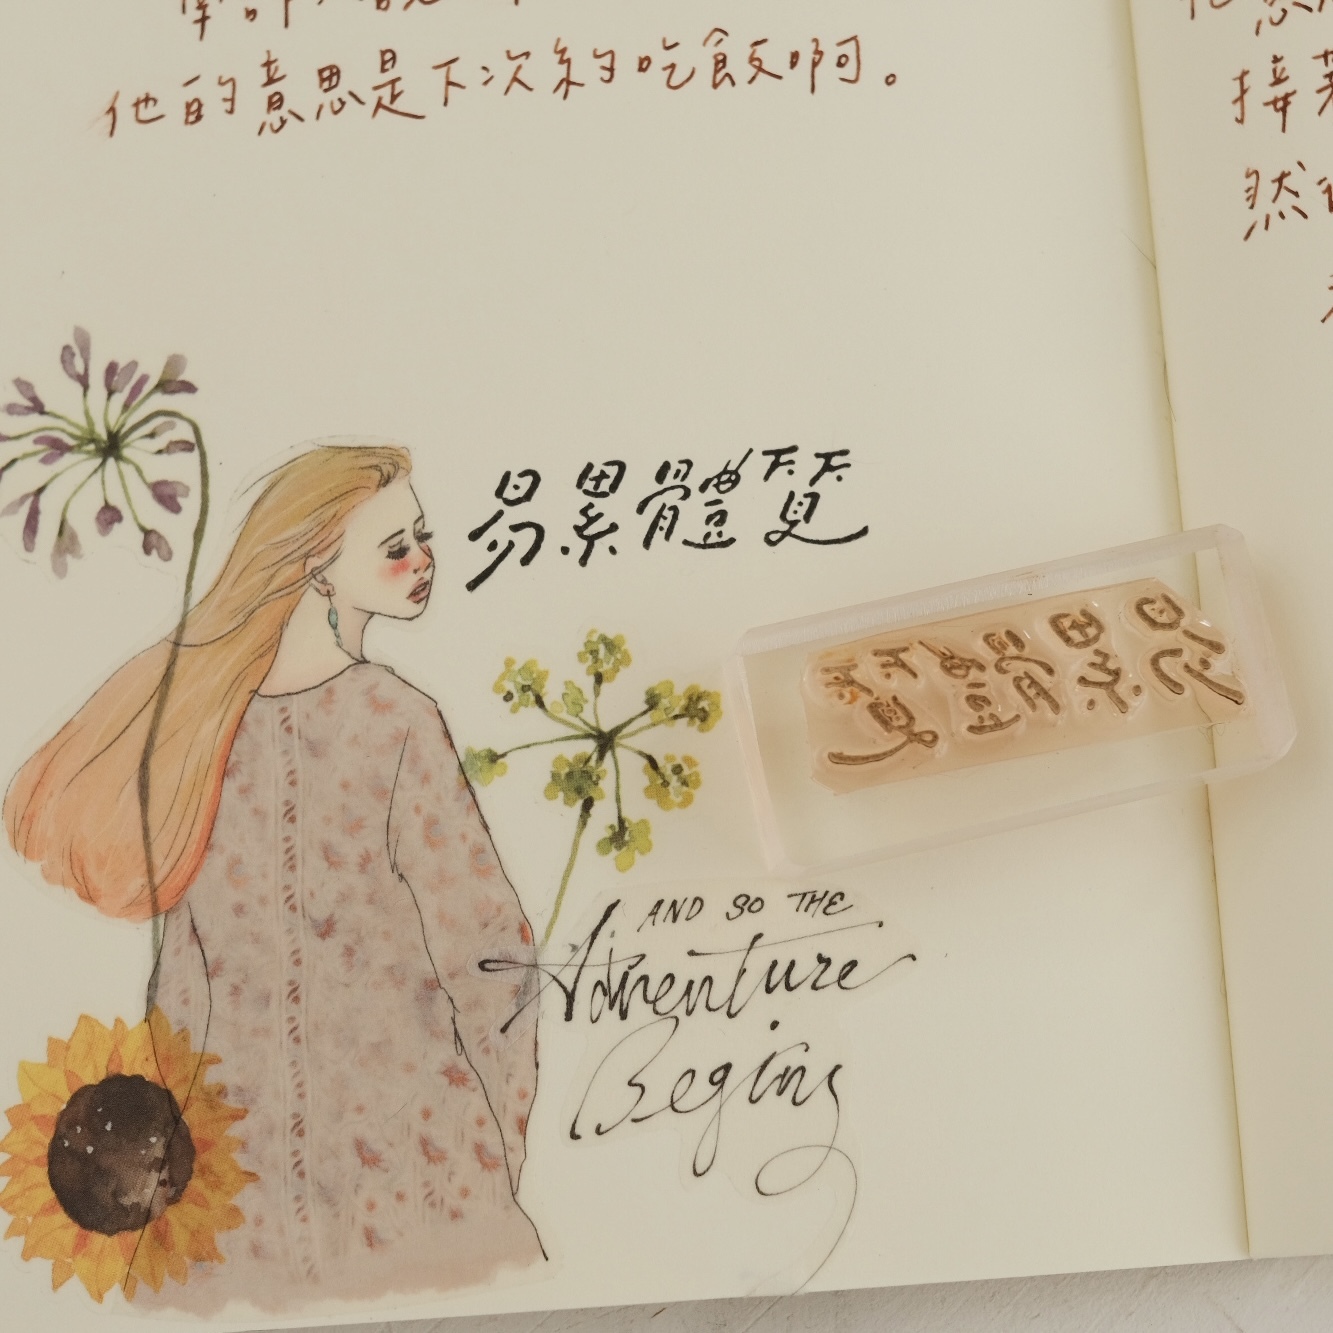 他的意思是下次約吃飯啊。
易累體質
AND SO THE
Adventure
Begins
接
然
易累體質